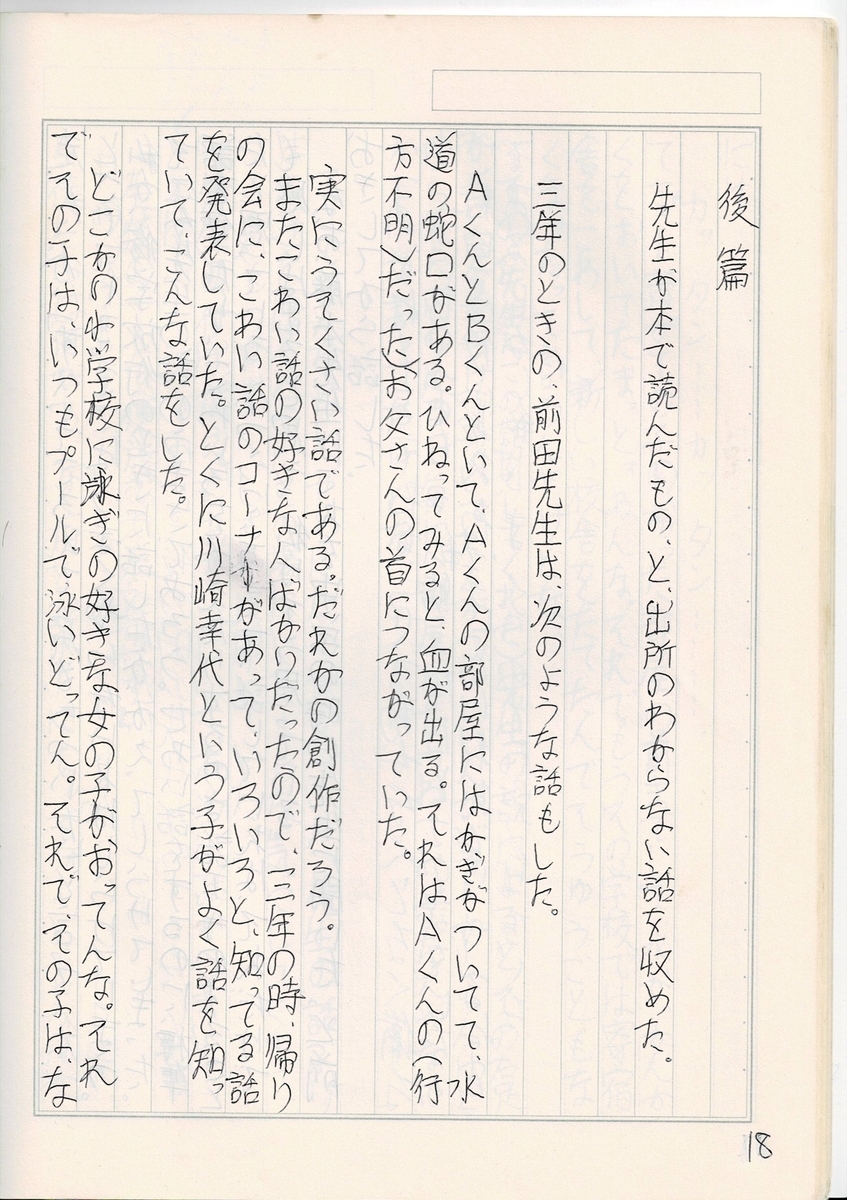 後篇
先生が本で読んだもの、と、出所のわからない話を収めた。
三年のときの、前田先生は、次のような話もした。
AくんとBくんといて、Aくんの部屋にはかぎがついてて、水
道の蛇口がある。ひねってみると、血が出る。それはAくんの(行
方不明)だった)お父さんの首につながっていた。
実にうそくさい話である。だれかの創作だろう。
またこわい話の好きな人ばかりだったので、三年の時、帰り
の会に、こわい話のコーナーがあって、いろいろと、知ってる話
を発表していた。とくに川崎幸代という子がよく話を知っ
ていて、こんな話をした。
どこかの小学校に泳ぎの好きな女の子がおってんな。それ
でその子は、いつもプールで泳いどってん。それで、その子は、な
18